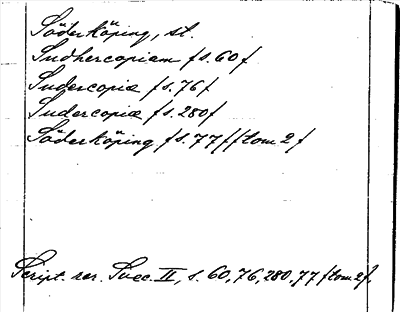 Söderköping, st.
Sudhercopiam /s. 60/
Sudercopie /s. 76/
Sudercopie /s. 280/
Söderköping /s. 77/ /tom 2/
Script. rer. Svec. II, s. 60, 76, 280, 77 /tom. 2/.